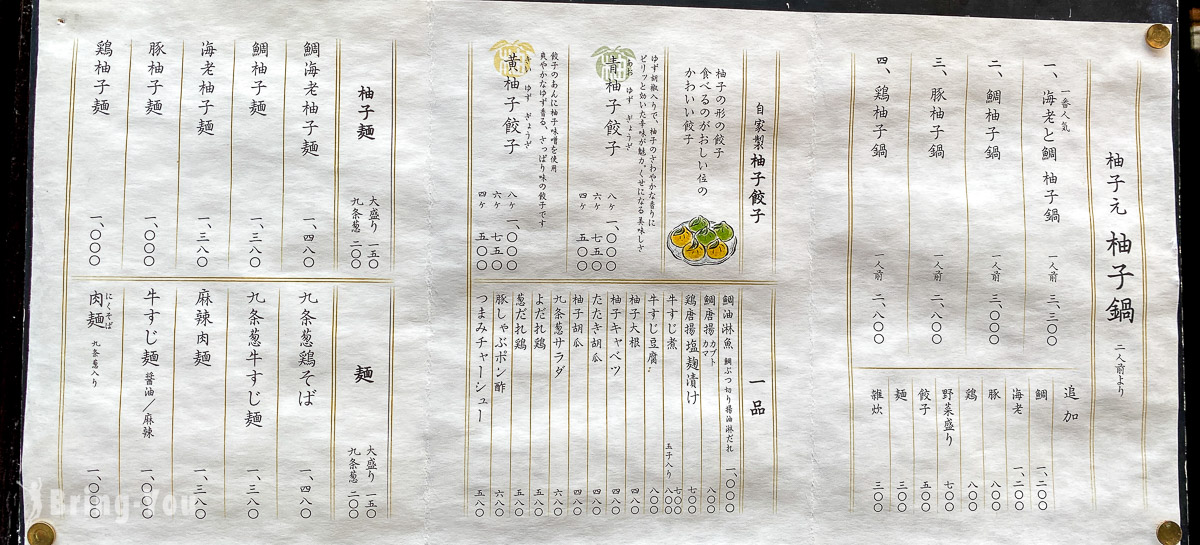 柚子え 柚子鍋 二人前より
一番人気
一、海老と鯛 柚子鍋 一人前 三、三〇〇
二、鯛柚子鍋 一人前 三、〇〇〇
三、豚柚子鍋 一人前 二、八〇〇
四、鶏柚子鍋 一人前 二、八〇〇
追加
鯛 一、二〇〇
海老 一、二〇〇
豚 八〇〇
鶏 八〇〇
野菜盛り 七〇〇
餃子 五〇〇
麺 三〇〇
雑炊 三〇〇
自家製 柚子餃子
柚子の形の餃子
食べるのがおしい位の
かわいい餃子
ゆず胡椒入りで、柚子のさわやかな香りに
ピリッと効いた辛味が魅力。くせになる美味しさ
あお ゆず ぎょうざ
青柚子餃子
八ヶ 一、〇〇〇
六ヶ 七五〇
四ヶ 五〇〇
餃子のあんに柚子味噌を使用
爽やかなゆず香る、さっぱり味の餃子です
きい ゆず ぎょうざ
黄柚子餃子
八ヶ 一、〇〇〇
六ヶ 七五〇
四ヶ 五〇〇
一品
鯛油淋魚 鯛ぶつ切り揚油淋だれ 一、〇〇〇
鯛唐揚 カブト カマ 八〇〇
鶏唐揚塩麹漬け 七〇〇
牛すじ煮 玉子入り 八〇〇 七〇〇
牛すじ豆腐 八〇〇
柚子大根 四八〇
柚子キャベツ 四八〇
たたき胡瓜 四八〇
柚子胡瓜 四八〇
九条葱サラダ 五八〇
よだれ鶏 五八〇
葱だれ鶏 五八〇
豚しゃぶポン酢 六八〇
つまみチャーシュー 五八〇
柚子麺
大盛り 一五〇
九条葱 二〇〇
鯛海老柚子麺 一、四八〇
鯛柚子麺 一、三八〇
海老柚子麺 一、三八〇
豚柚子麺 一、〇〇〇
鶏柚子麺 一、〇〇〇
麺
大盛り 一五〇
九条葱 二〇〇
九条葱鶏そば 一、四八〇
九条葱牛すじ麺 一、三八〇
麻辣肉麺 一、三八〇
牛すじ麺 醤油／麻辣 一、〇〇〇
にくそば
肉麺 九条葱入り 一、〇〇〇
Bring-You